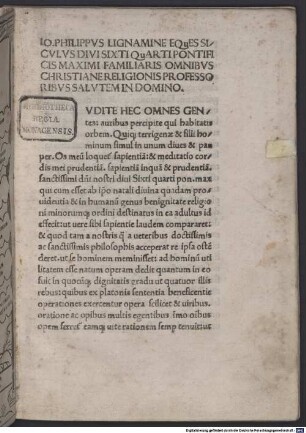 IO.PHILIPPVS LIGNAMINE EQuES SI
CVLVS DIVI SIXTI QuARTI PONTIFI
CIS MAXIMI FAMILIARIS OMNIBVS
CHRISTIANE RELIGIONIS PROFESSO
RIBVS SALVTEM IN DOMINO.
BIBLIOTHECA
REGIA
MONACENSIS.
VDITE HEC OMNES GEN
tes: auribus percipite qui habitatis
orbem. Quiq; terrigenæ & filii ho
minum simul in unum diues & pau
per. Os meũ loquet' sapientiã: & meditatio cor
dis mei prudentiã. sapientiã inquã & prudentiã.
sanctissimi dñi nostri diui Sixti quarti pon. max
qui cum esset ab ipo natali diuina quadam pro
uidentia & in humanũ genus benignitate religio
ni minorumq; ordini destinatus in ea adultus id
effecit ut uere sibi sapientie laudem compararet:
& quod tam a nostris q̃ a ueteribus doctissimis
ac sanctissimis philosophis acceperat re ipsa oste
deret. ut se hominem meminisset: ad hominũ uti
litatem esse natum operam dedit quantum in eo
fuit in quoncq; dignitatis gradu ut quatuor illis
rebus quibus ex platonis sententia beneficentie
operationes exercentur opera scilicet & uiribus.
oratione ac opibus multis egentibus imo nibus
opem ferret eamq; uite rationem semp tenuit ius